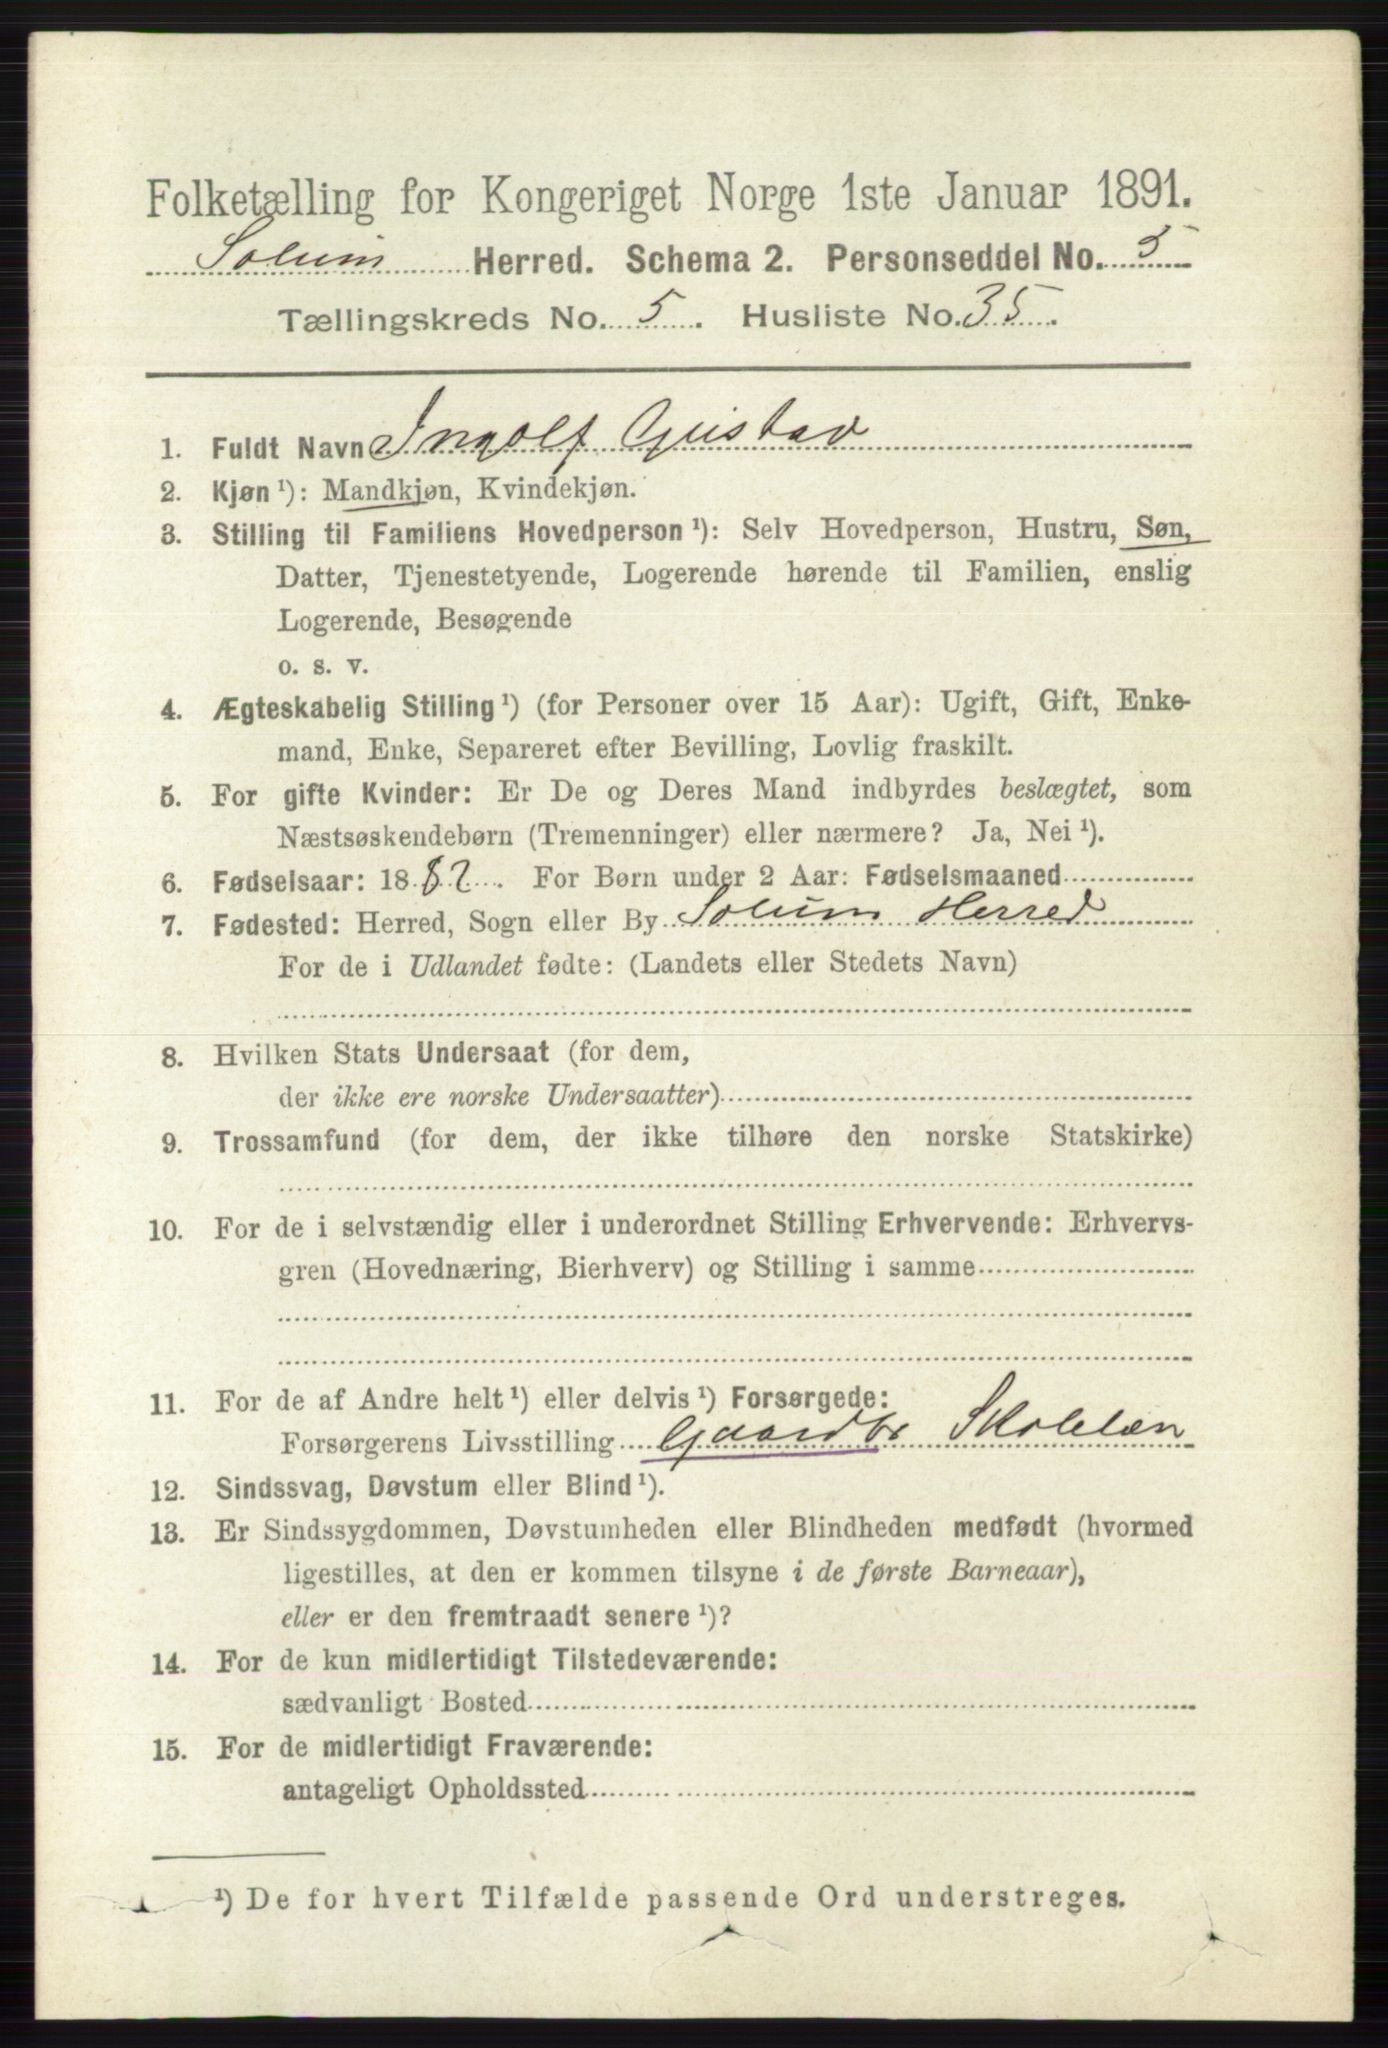 Folketælling for Kongeriget Norge 1ste Januar 1891.
Solum Herred. Schema 2. Personseddel No. 5
Tællingskreds No. 5. Husliste No. 35.
1. Fuldt Navn Ingolf Gustav
2. Kjøn ¹): Mandkjøn, Kvindekjøn.
3. Stilling til Familiens Hovedperson ¹): Selv Hovedperson, Hustru, Søn,
Datter, Tjenestetyende, Logerende hørende til Familien, enslig
Logerende, Besøgende
o. s. v.
4. Ægteskabelig Stilling ¹) (for Personer over 15 Aar): Ugift, Gift, Enke-
mand, Enke, Separeret efter Bevilling, Lovlig fraskilt.
5. For gifte Kvinder: Er De og Deres Mand indbyrdes beslægtet, som
Næstsøskendebørn (Tremenninger) eller nærmere? Ja, Nei ¹).
6. Fødselsaar: 1882. For Børn under 2 Aar: Fødselsmaaned
7. Fødested: Herred, Sogn eller By Solum Herred
For de i Udlandet fødte: (Landets eller Stedets Navn)
8. Hvilken Stats Undersaat (for dem,
der ikke ere norske Undersaatter)
9. Trossamfund (for dem, der ikke tilhøre den norske Statskirke)
10. For de i selvstændig eller i underordnet Stilling Erhvervende: Erhvervs-
gren (Hovednæring, Bierhverv) og Stilling i samme
11. For de af Andre helt ¹) eller delvis ¹) Forsørgede:
Forsørgerens Livsstilling Gaardbr Skolelæn
12. Sindssvag, Døvstum eller Blind ¹).
13. Er Sindssygdommen, Døvstumheden eller Blindheden medfødt (hvormed
ligestilles, at den er kommen tilsyne i de første Barneaar),
eller er den fremtraadt senere ¹)?
14. For de kun midlertidigt Tilstedeværende:
sædvanligt Bosted
15. For de midlertidigt Fraværende:
antageligt Opholdssted
¹) De for hvert Tilfælde passende Ord understreges.